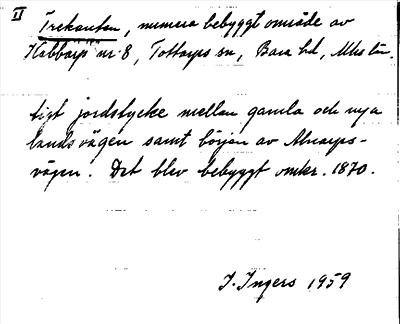 II
Trekanten, numera bebyggt område av
Kabbarp nr 8, Tottarps sn, Bara hd, Mlhs län.
tigt jordstycke mellan gamla och nya
landsvägen samt början av Alnarps-
vägen. Det blev bebyggt omkr. 1870.
I. Ingers 1959